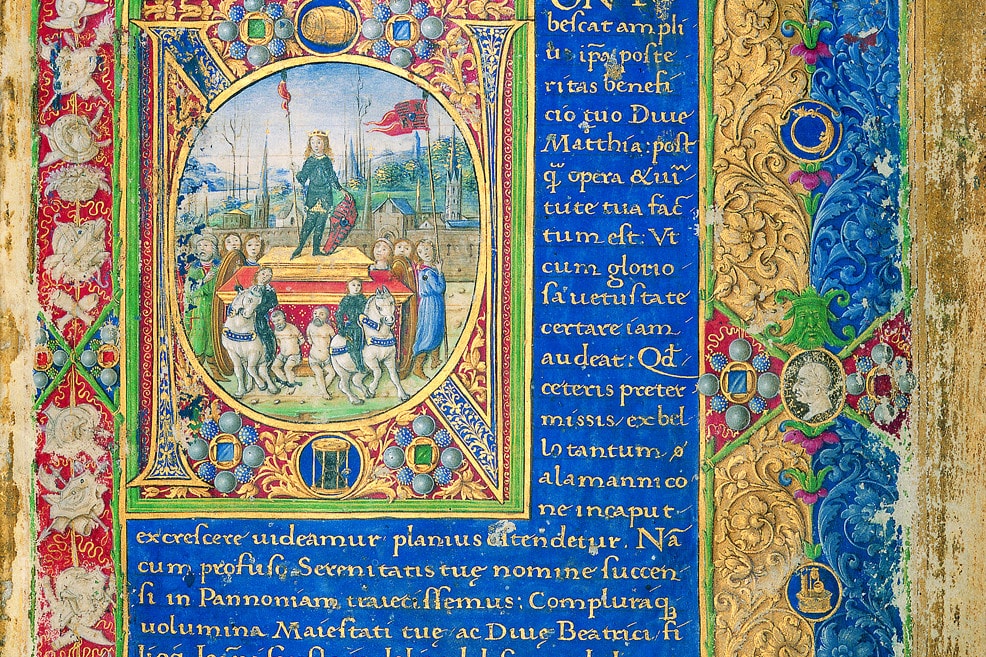 bescat ampli
ritas benefi
cio tuo Diue
Matthia: post
opera & uir
tute tua fac
tum est: Vt
cum glorio
sa uetustate
certare iam
audeat: Qđ
ceteris preter
missis, ex bel
lo tantum
alamanni co
ne in caput
excrescere uideamur planius ostendetur. Nā
cum profuso Serenitatis tuę nomine succen
si in Pannoniam traiecissemus: Compluraqꝫ
uolumina Maiestati tuę ac Diuę Beatrici fi